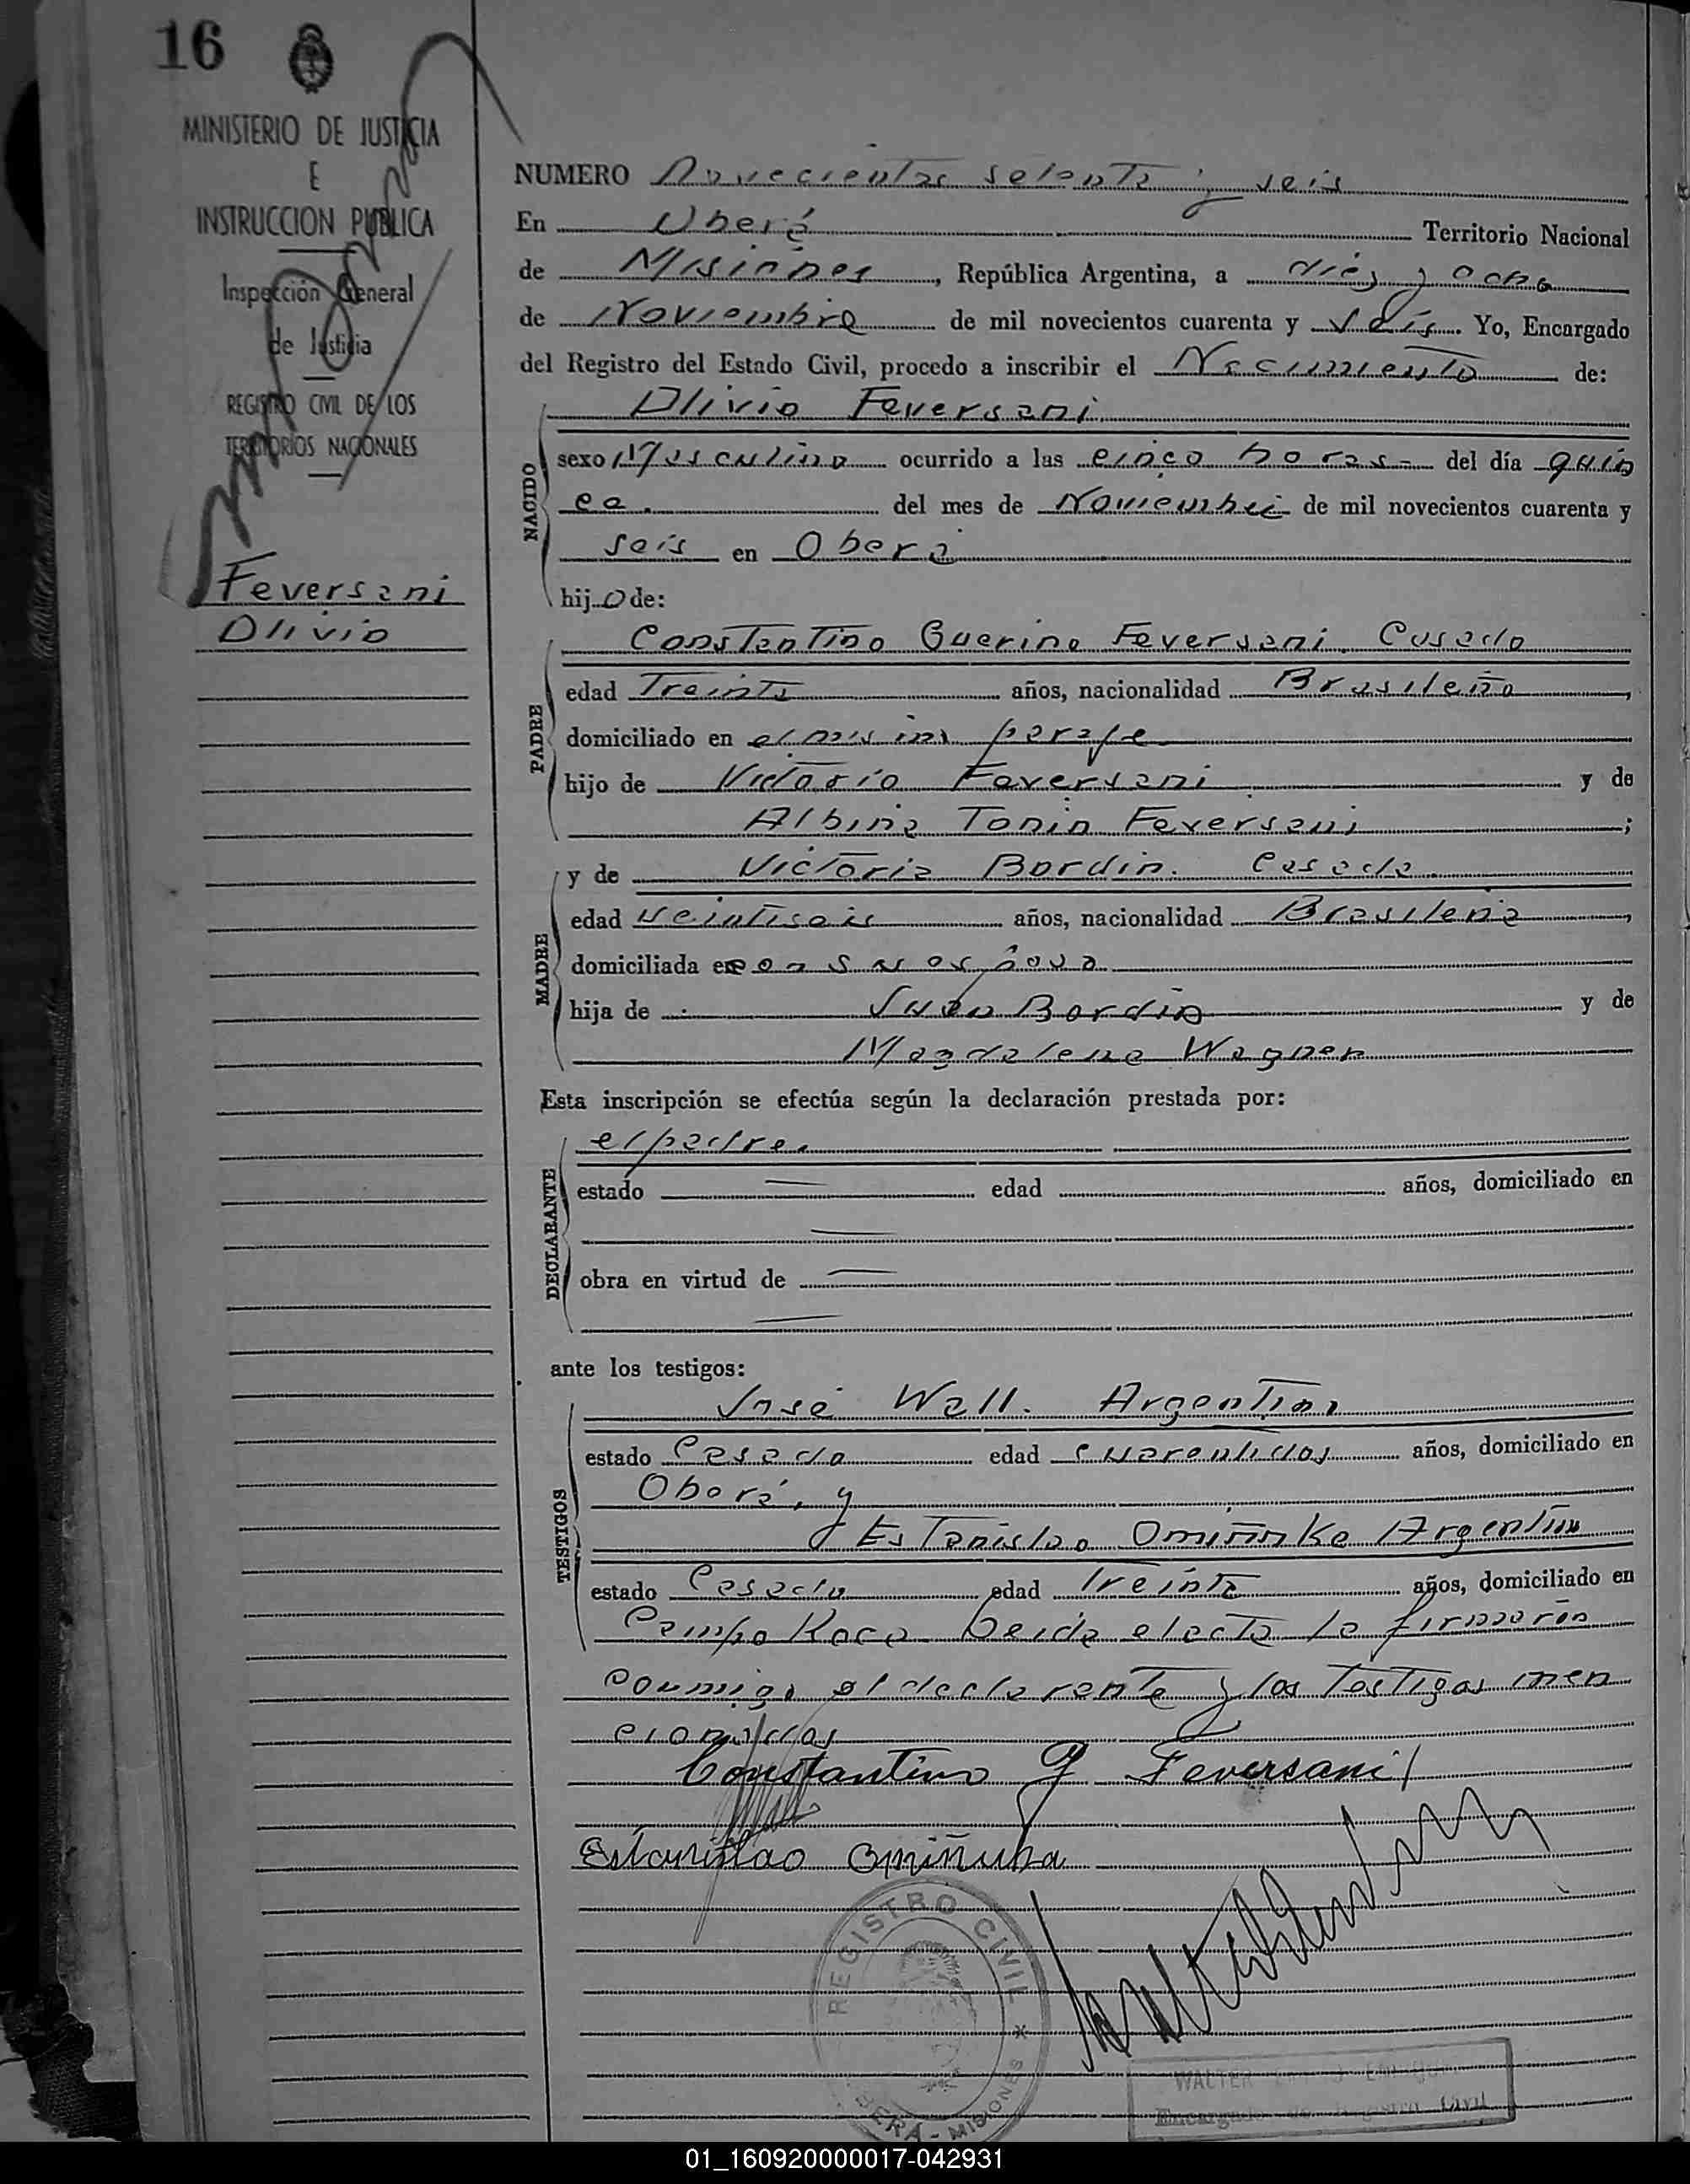 16
MINISTERIO DE JUSTICIA
E
INSTRUCCION PUBLICA
Inspección General
de Justicia
REGISTRO CIVIL DE LOS
TERRITORIOS NACIONALES
Feversani
Olivio
NUMERO Novecientos setenta y seis
En Oberá Territorio Nacional
de Misiones, República Argentina, a dies y ocho
de Noviembre de mil novecientos cuarenta y seis. Yo, Encargado
del Registro del Estado Civil, procedo a inscribir el Nacimiento de:
Olivio Feversani
NACIDO
sexo Masculino ocurrido a las cinco horas- del día quin
ce. del mes de Noviembre de mil novecientos cuarenta y
seis en Oberá
hijo de:
Constantino Guerino Feversani. Casado
PADRE
edad Treinta años, nacionalidad Brasileño,
domiciliado en el mismo paraje
hijo de Victorio Feversani y de
Albina Tonin Feversani;
y de Victoria Bordin. Casada.
MADRE
edad veintiseis años, nacionalidad Brasileña,
domiciliada en con su esposo
hija de Juan Bordin y de
Magdalena Wagner
Esta inscripción se efectúa según la declaración prestada por:
el padre.
DECLARANTE
estado — edad años, domiciliado en
—
obra en virtud de —
—
ante los testigos:
José Wall. Argentino
TESTIGOS
estado Casado edad cuarentidos años, domiciliado en
Oberá, y
Estanislao Omiñuka Argentino
estado Casado edad treinta años, domiciliado en
Campo Roca Leida el acta la firmarón
conmigo el declarante y los testigos men
cionados
Constantino G Feversani
Estanislao Omiñuka
REGISTRO CIVIL
OBERÁ - MISIONES
WALTER
Encargado de Registro Civil
01_160920000017-042931